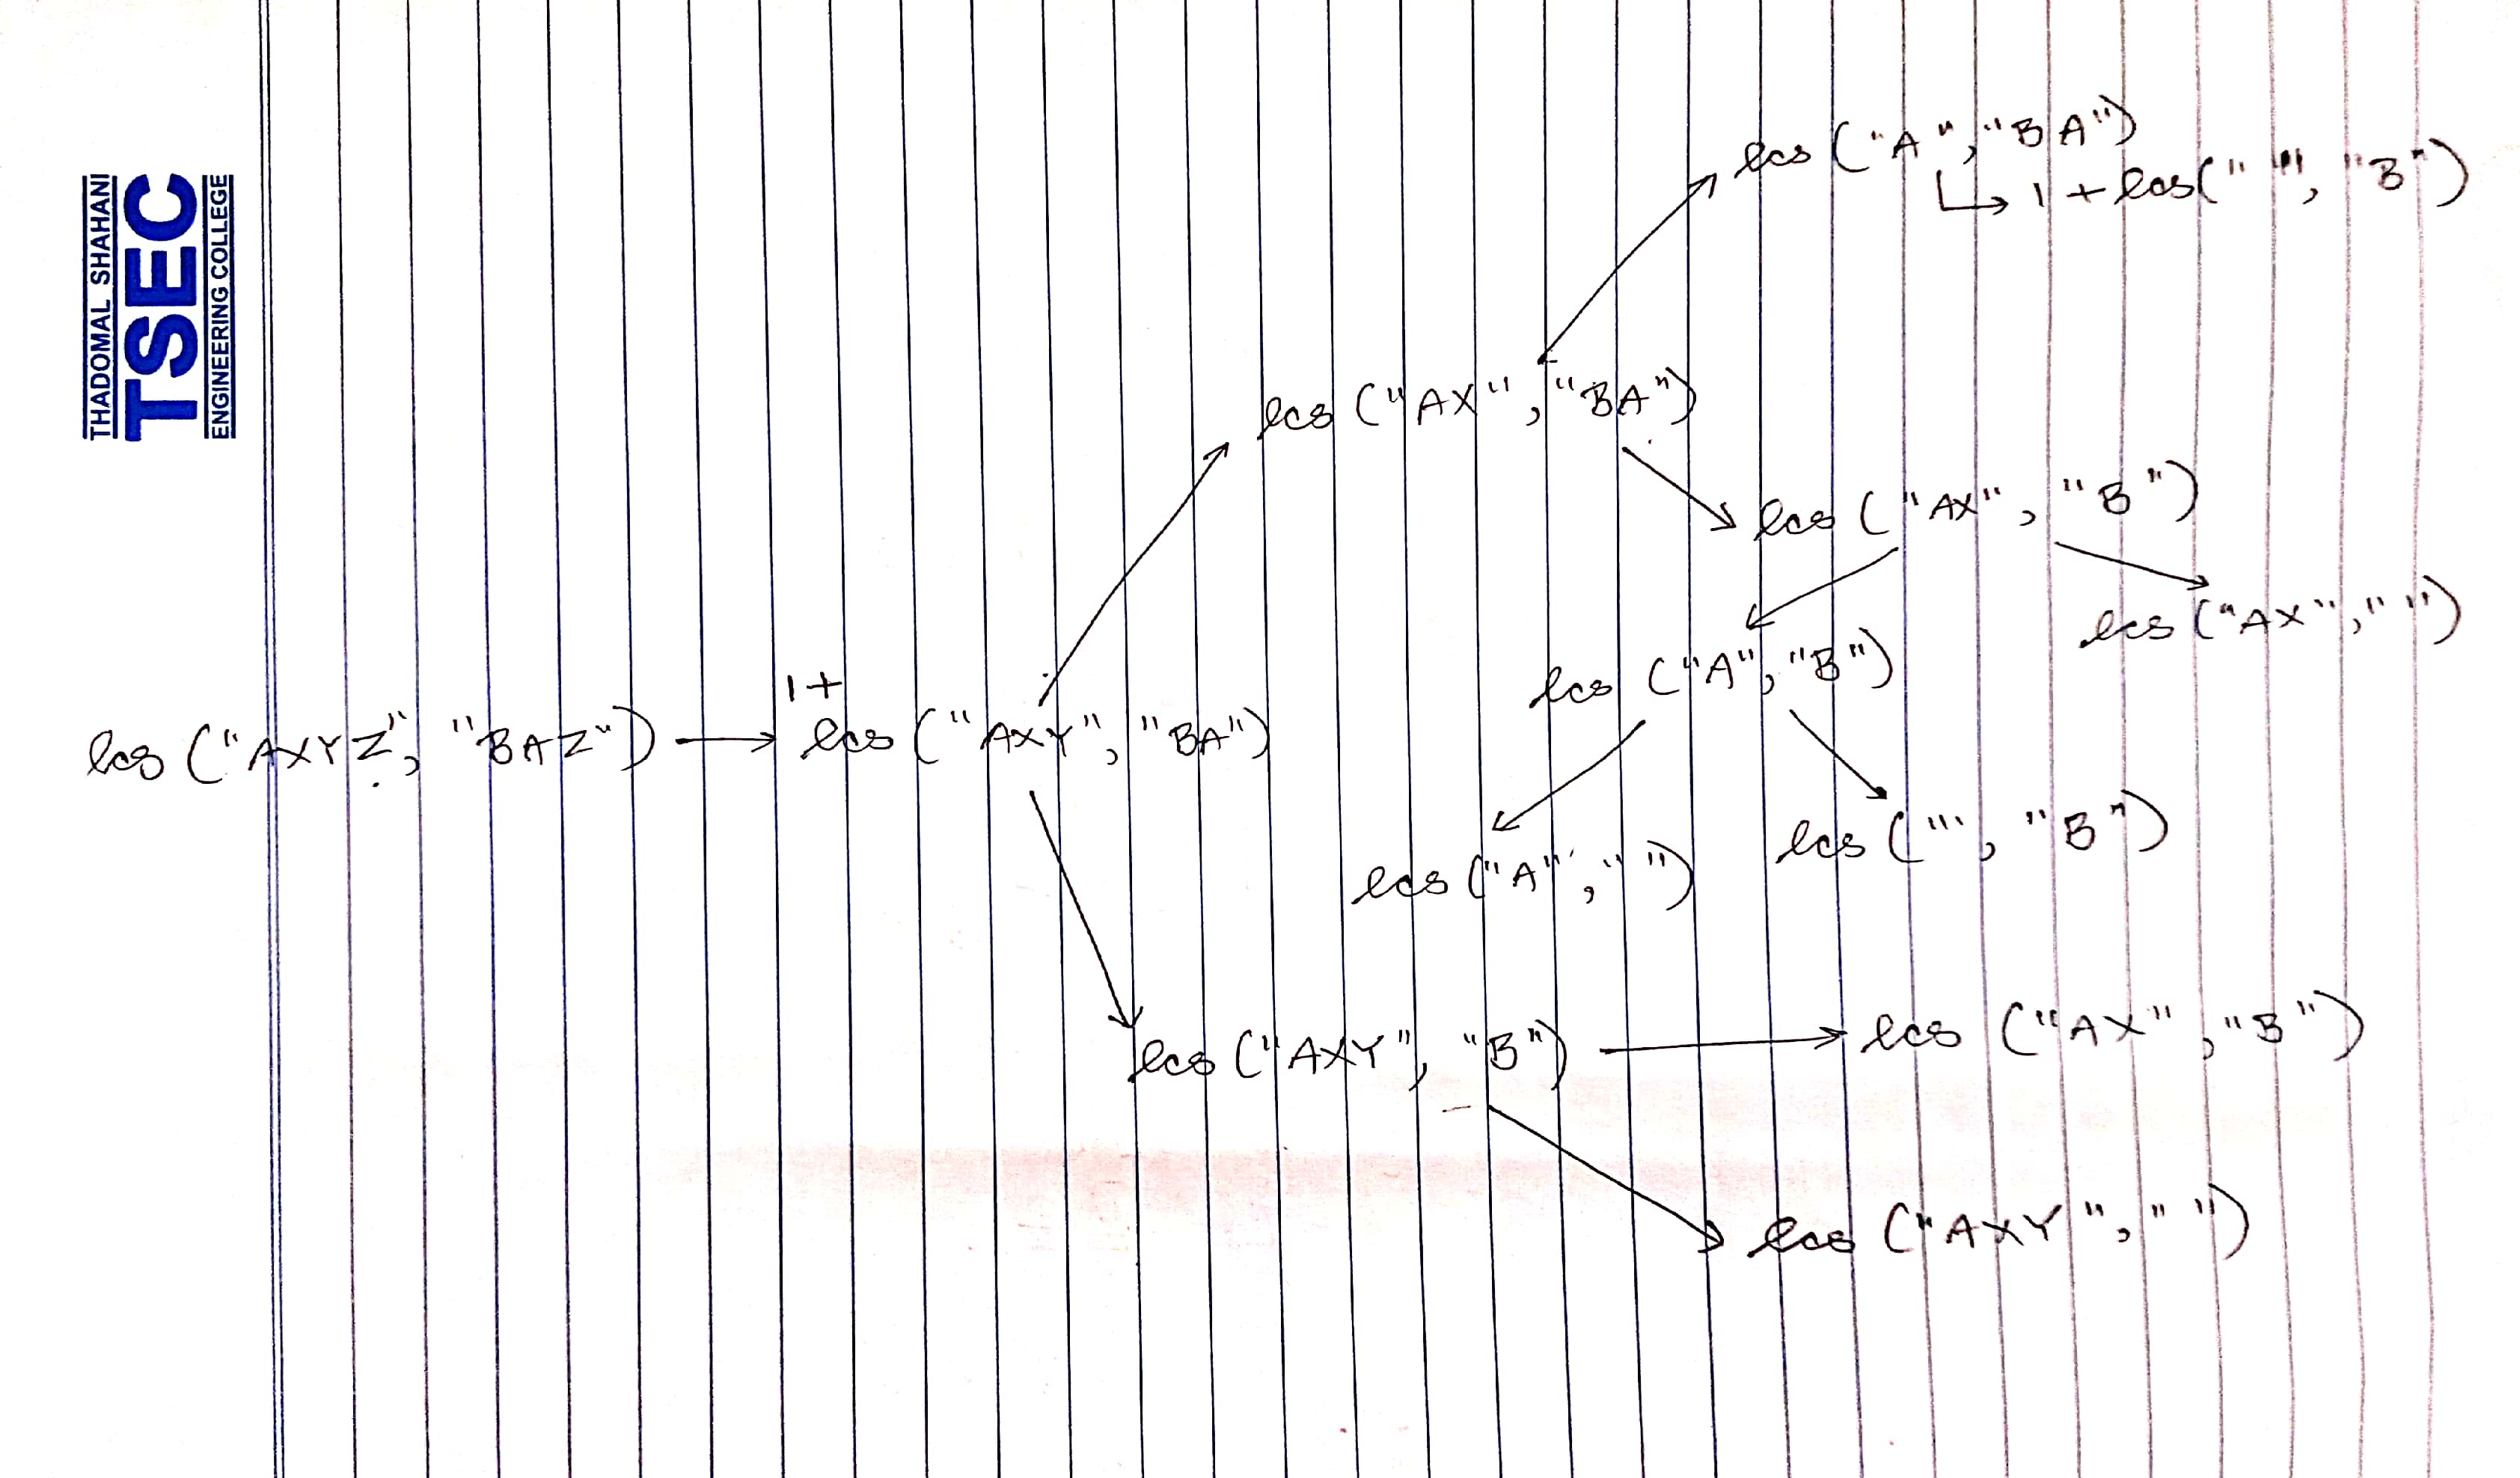 THADOMAL SHAHANI
TSEC
ENGINEERING COLLEGE
lcs ("A", "BA")
1 + lcs(" ", "B")
lcs ("AX", "BA")
lcs ("AX", "B")
lcs ("AX", " ")
lcs ("A", "B")
1+
lcs ("AXYZ", "BAZ")
lcs ("AXY", "BA")
lcs ("", "B")
lcs ("A", " ")
lcs ("AXY", "B")
lcs ("AX", "B")
lcs ("AXY", " ")